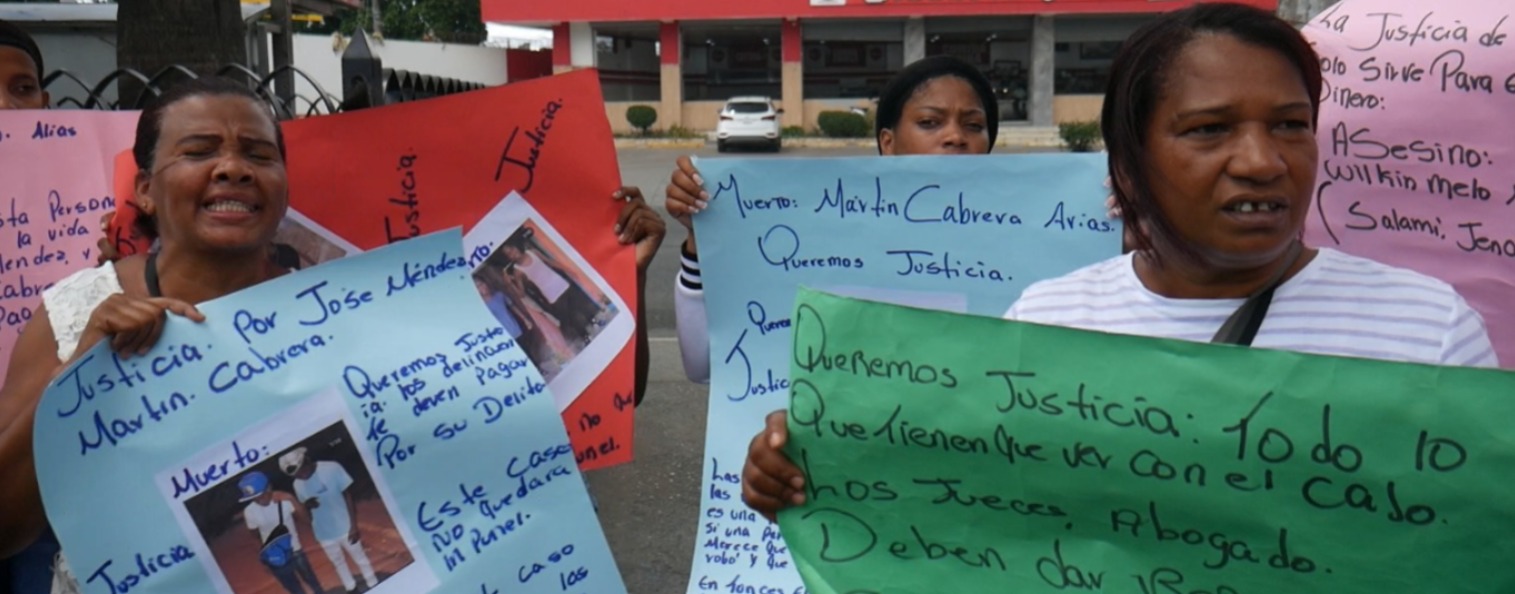 Alias
sta Persona
la vida
Justicia.
Justicia.
Justicia. Por José Méndez
Martin. Cabrera.
Muerto:
Queremos Justo
ia. los delincuen
te deven Pagar
Por su Delito
Este Caso
No quedara
In Punel.
Justicia
caso
los
no que
unel.
Muerto: Martin Cabrera Arias.
Queremos Justicia.
Justic
Los
las
es una
si una Per
Merece que
robo' y que
En Tonces
Queremos Justicia: Todo lo
Que Tienen Que ver con el Caso.
Los Jueces, Abogado.
Deben dar
La Justicia de
olo Sirve Para
Dinero:
ASesino:
Wilkin Melo
(Salami. Jeno